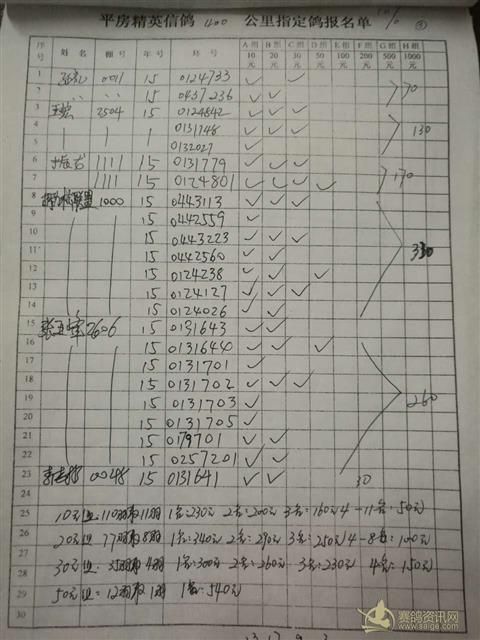 平房精英信鸽 400 公里指定鸽报名单 10% ②
序号 姓名 棚号 年号 环号 A组10元 B组20元 C组30元 D组50元 E组100元 F组200元 G组500元 H组1000元
1 0011 15 0124733 ✓ ✓
2 〃 〃 15 0457236 ✓ ✓ 70
3 王宏 2504 15 0124842 ✓ ✓ ✓
4 0131748 ✓ ✓ ✓ 130
5 0132027 ✓
6 1111 15 0131779 ✓ ✓ ✓
7 1111 15 0124801 ✓ ✓ ✓ ✓ 170
8 联盟 1000 15 0443113 ✓ ✓ ✓
9 15 0442559 ✓
10 15 0443223 ✓ ✓ ✓
11 15 0442560 ✓ ✓ 330
12 15 0124238 ✓ ✓ ✓
13 15 0124127 ✓ ✓ ✓
14 15 0124026 ✓ ✓
15 2606 15 0131643 ✓ ✓
16 15 0131644 ✓ ✓ ✓
17 15 0131701 ✓
18 15 0131702 ✓ ✓ ✓
19 15 0131703 ✓ 260
20 15 0131705 ✓
21 15 0179701 ✓ ✓
22 15 0257201 ✓ ✓
23 0048 15 0131641 ✓ ✓ 30
24
25 10元组: 110羽取11羽 1名:230元 2名:200元 3名:160元 4-11名:50元
26 20元组: 77羽取8羽 1名:340元 2名:290元 3名:250元 4-8名:100元
27 30元组: 35羽取4羽 1名:300元 2名:260元 3名:230元 4名:150元
28
29 50元组: 12羽取1羽 1名:540元
30
赛鸽资讯网
www.saige.com